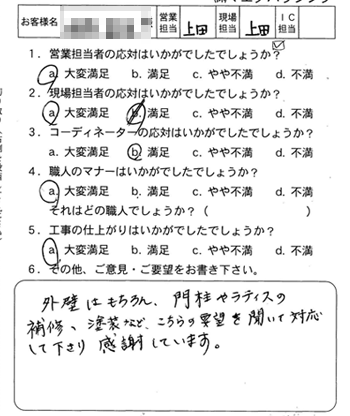 お客様名 営業担当 上田 現場担当 上田 IC担当
1．営業担当者の応対はいかがでしたでしょうか？
a. 大変満足 b. 満足 c. やや不満 d. 不満
2．現場担当者の応対はいかがでしたでしょうか？
a. 大変満足 b. 満足 c. やや不満 d. 不満
3．コーディネーターの応対はいかがでしたでしょうか？
a. 大変満足 b. 満足 c. やや不満 d. 不満
4．職人のマナーはいかがでしたでしょうか？
a. 大変満足 b. 満足 c. やや不満 d. 不満
それはどの職人でしょうか？（ ）
5．工事の仕上がりはいかがでしたでしょうか？
a. 大変満足 b. 満足 c. やや不満 d. 不満
6．その他、ご意見・ご要望をお書き下さい。
外壁はもちろん、門柱やラティスの
補修、塗装など、こちらの要望を聞いて対応
して下さり感謝しています。